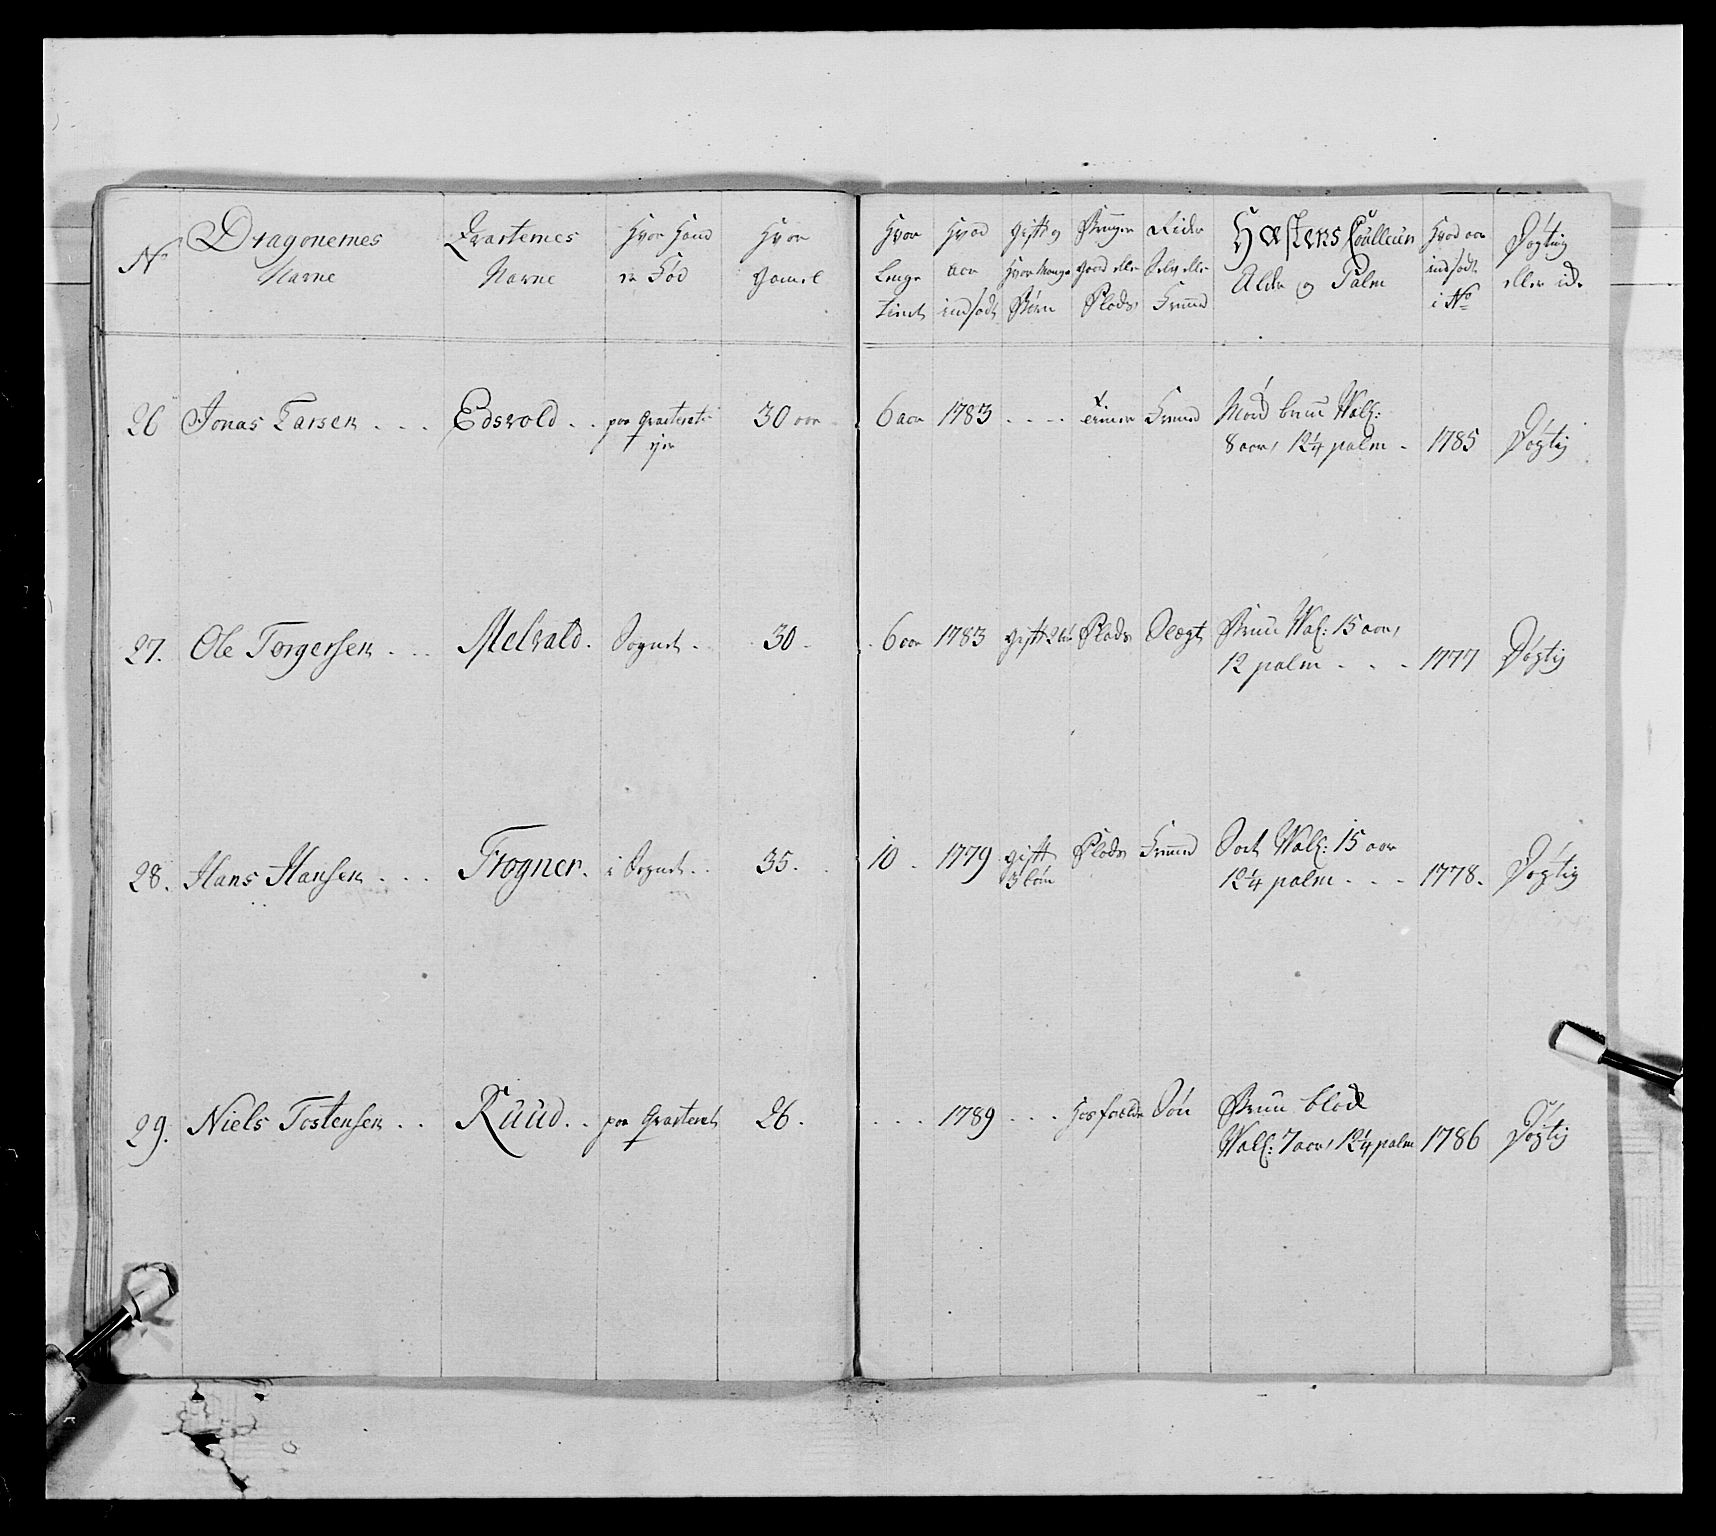 No
Dragonernes
Navne
Qvarternes
Navne
Hvor Hand
er Fød
Hvor
Gamel
Hvor
Lenge
tient
Hvad
aar
indsadt
Gift og
Hvor Mange
Børn
Bruger
Gaard eller
Plads
Rider
Selv eller
Fremed
Hæstens Coulleur
Alder og Palm
Hvad aar
indsadt
i No
Døgtig
eller ide
26 Jonas Larsen . . . Edsvold . . paa Qvarteret 30 aar 6 aar 1783 . . . . Fremed
8 aar, 12¼ palm - 1785 Døgtig
27. Ole Torgersen . . . Melvald . Sognet . 30 . 6 aar 1783 gift 2 bø Plads Slegt Brun Val: 15 aar,
12 palm . . . 1777 Døgtig
28. Hans Hansen . . . Frogner . i Sognet . . 35 . 10 . 1779 gift
3 børn Plads Fremed Sort Vall: 15 aar
12¼ palm . . . 1778. Døgtig
29. Niels Tostensen . . Ruud . . paa Qvarteret 26 . . . . 1789 . . . Hos forældre Søn Brun blod
Vall: 7 aar, 12¼ palm 1786 Døgtig